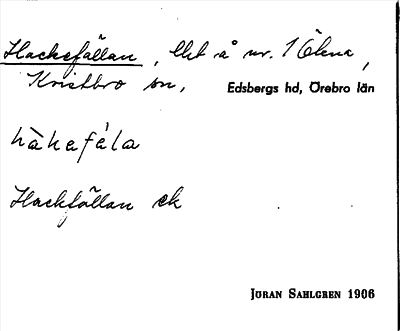 Hackefällan, lht å nr. 1 Ölena,
Kvistbro sn, Edsbergs hd, Örebro län
hàkafäla
Hackfällan ek
JÖRAN SAHLGREN 1906